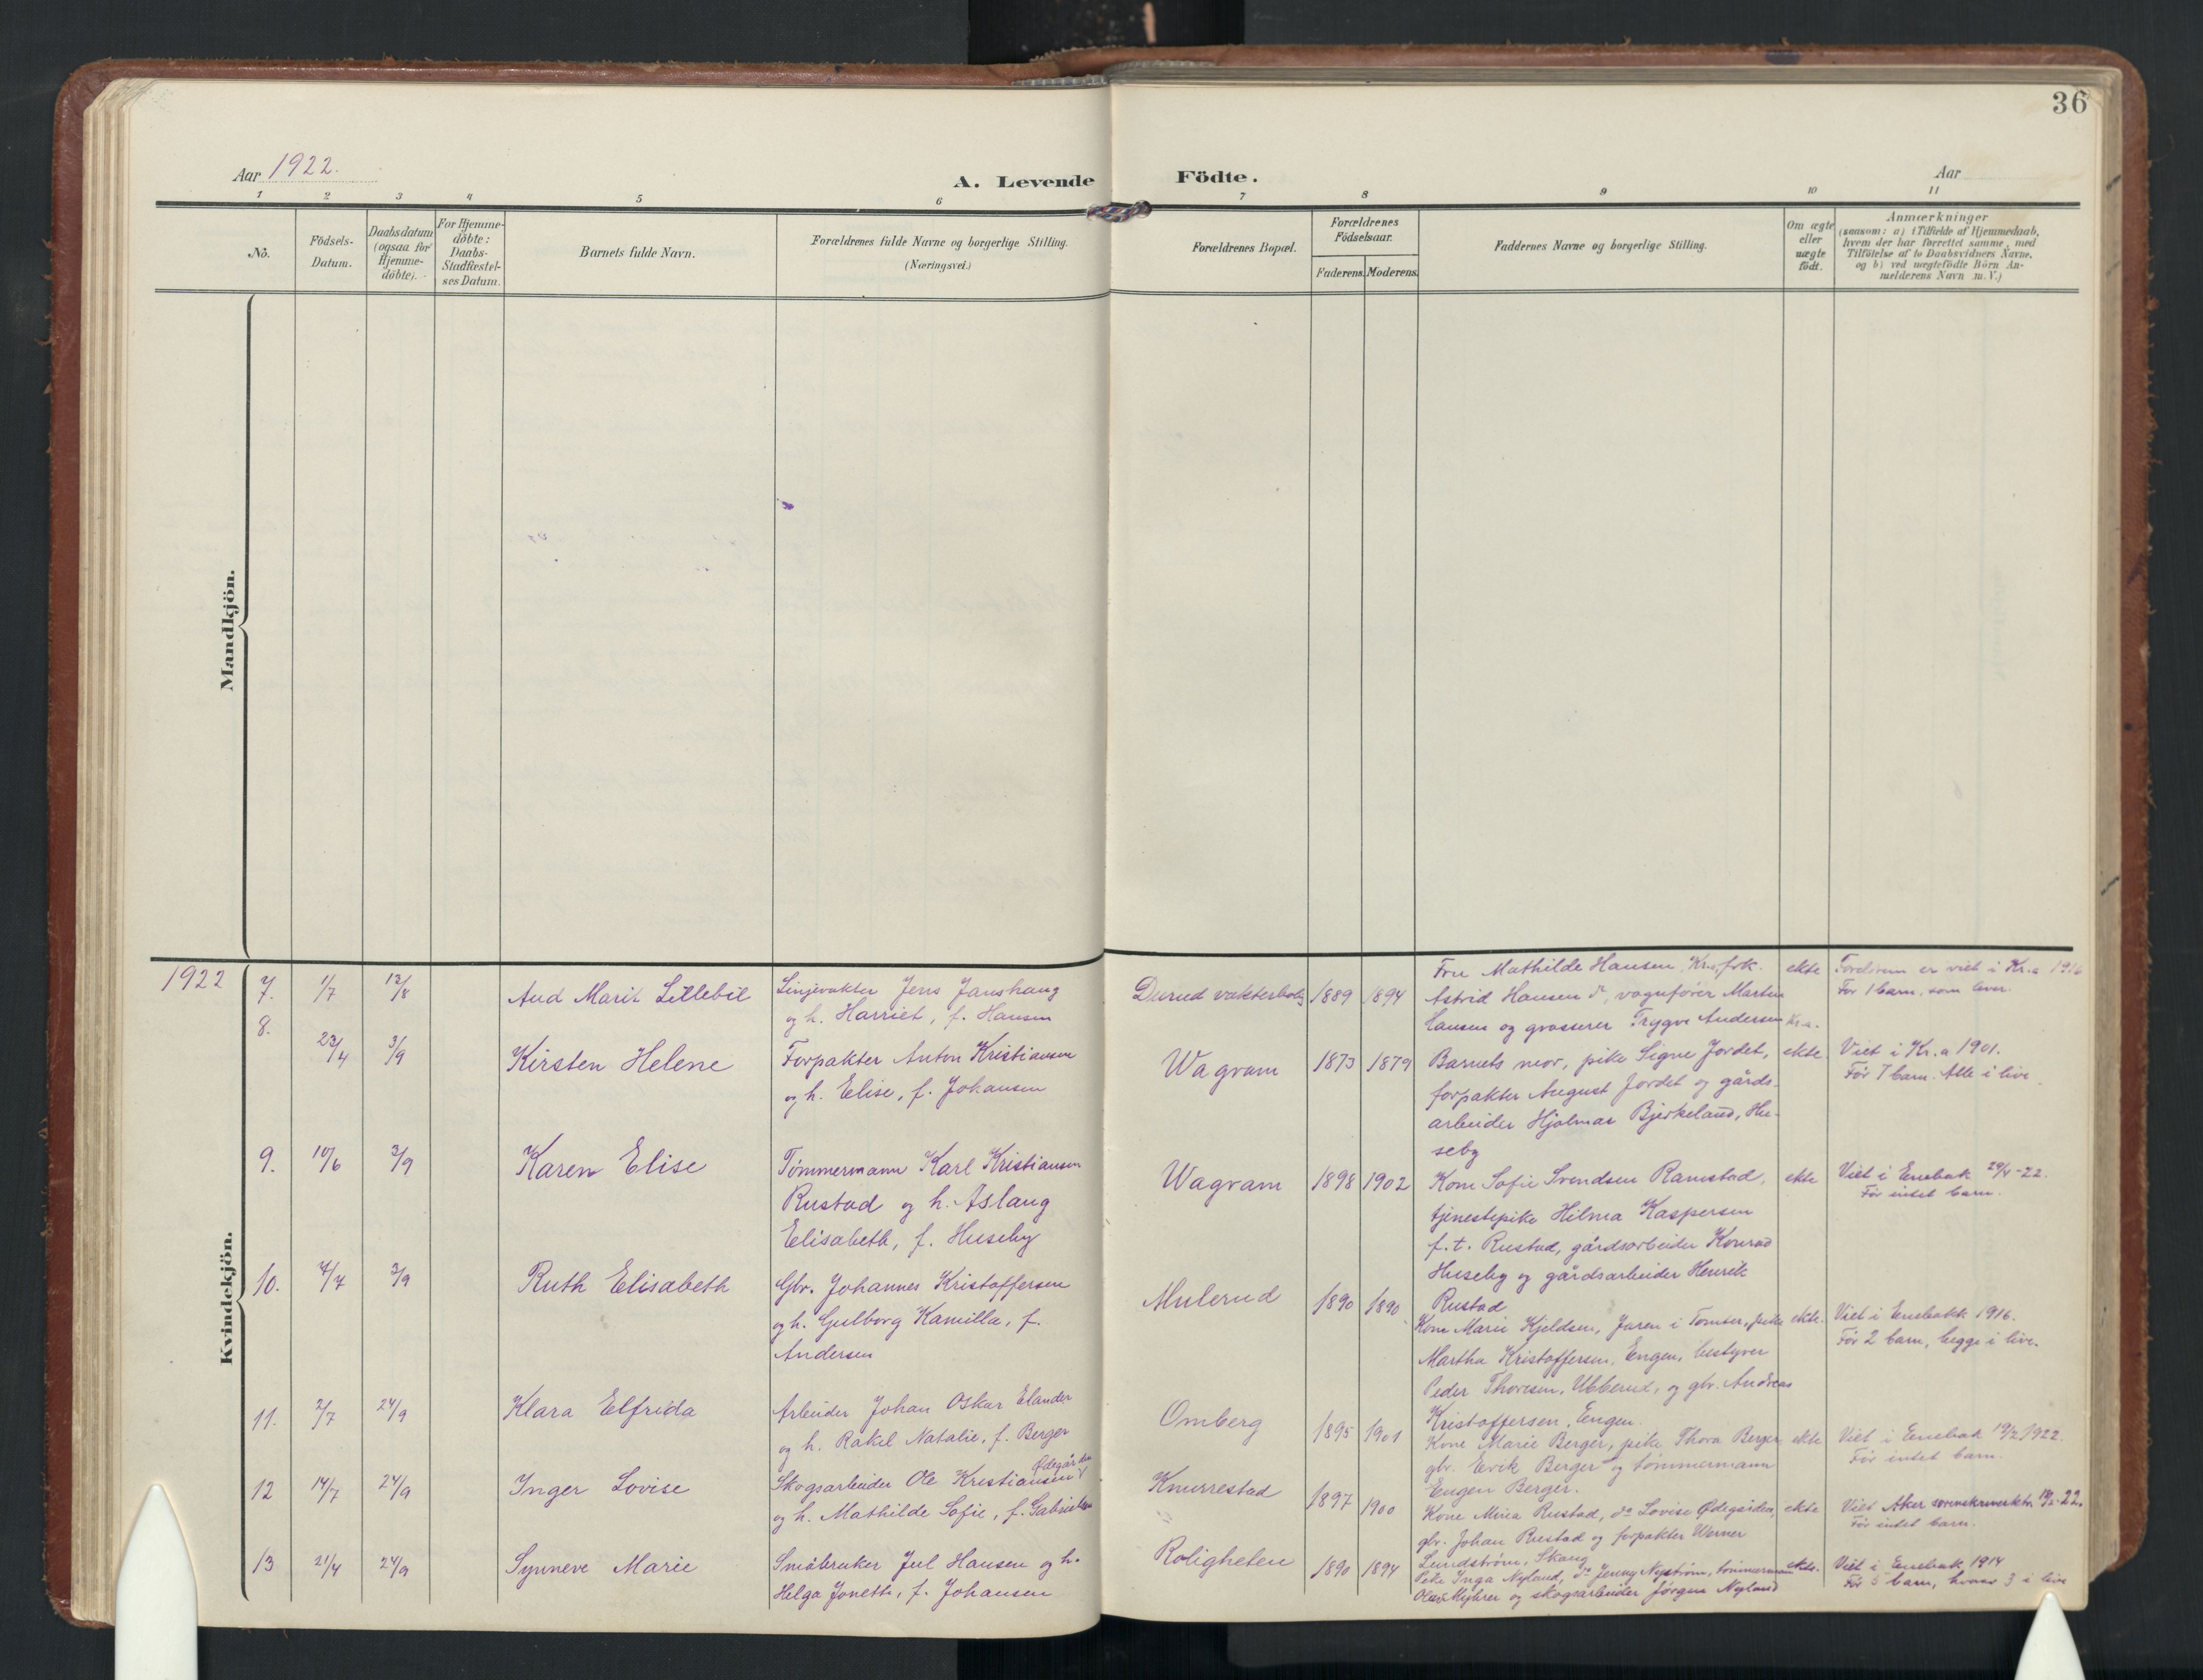 36
Aar 1922.
A. Levende Födte.
Aar
1 2 3 4 5 6 7 8 9 10 11
No.
Födsels-
Datum.
Daabsdatum
(ogsaa for
Hjemme-
döbte).
For Hjemme-
döbte:
Daabs-
Stadfæstel-
ses Datum.
Barnets fulde Navn.
Forældrenes fulde Navne og borgerlige Stilling.
(Næringsvei.)
Forældrenes Bopæl.
Forældrenes
Födselsaar.
Faderens. Moderens.
Faddernes Navne og borgerlige Stilling.
Om ægte
eller
uægte
födt.
Anmærkninger
(saasom: a) i Tilfælde af Hjemmedaab,
hvem der har forrettet samme, med
Tilföielse af to Daabsvidners Navne.
og b) ved uægtefödte Börn An-
melderens Navn m. V.)
Mandkjön.
Kvindekjön.
1922
7. 1/7 13/8 Aud Marit Lillebil
Linjevakter Jens Janshaug
og h. Harriet, f. Hansen
Durud vakterbolig 1889 1894
Fru Mathilde Hansen, Kr.a, frk.
Astrid Hansen do, vognfører Martin
Hansen og grosserer Trygve Andersen Kr.a.
ekte
Foreldrene er viet i Kr.a 1916
Før 1 barn, som lever.
8. 23/4 3/9 Kirsten Helene
Forpakter Anton Kristiansen
og h. Elise, f. Johansen
Wagram 1873 1879
Barnets mor, pike Signe Jordet,
forpakter August Jordet og gårds-
arbeider Hjalmar Bjerkeland, Hu-
seby
ekte
Viet i Kr.a 1901.
Før 7 barn. Alle i live.
9. 10/6 3/9 Karen Elise
Tømmermann Karl Kristiansen
Rustad og h. Aslaug
Elisabeth, f. Huseby
Wagram 1898 1902
Kone Sofie Svendsen Ramstad,
tjenestepike Hilma Kaspersen
f.t. Rustad, gårdsarbeider Konrad
Huseby og gårdsarbeider Henrik
Rustad
ekte
Viet i Enebak 29/4-22.
Før intet barn.
10. 4/7 3/9 Ruth Elisabeth
Gbr. Johannes Kristoffersen
og h. Gulborg Kamilla, f.
Andersen
Mulerud 1890 1890
Kone Marie Kjeldsen, Jaren i Tomter, pike
Martha Kristoffersen, Engen, bestyrer
Peder Thoresen, Ubberud, og gbr. Andreas
Kristoffersen, Engen.
ekte.
Viet i Enebakk 1916.
Før 2 barn, begge i live.
11. 2/7 24/9 Klara Elfrida
Arbeider Johan Oskar Elander
og h. Rakel Natalie, f. Berger
Omberg 1895 1901
Kone Marie Berger, pike Thora Berger,
gbr. Erik Berger og tømmermann
Eugen Berger.
ekte
Viet i Enebak 19/2 1922
Før intet barn.
12 14/7 24/9 Inger Lovise
Ødegården
Skogsarbeider Ole Kristiansen
og h. Mathilde Sofie, f. Gabrielsen
Knurrestad 1897 1900
Kone Mina Rustad, do Lovise Ødegården,
gbr. Johan Rustad og forpakter Werner
Lundstrøm, Skaug
ekte
Viet Aker sorenskriverktr. 22.
Før intet barn.
13 21/4 24/9 Synneve Marie
Småbruker Jul Hansen og h.
Helga Jonette, f. Johansen
Roligheten 1890 1894
Pike Inga Nyland, do Jenny Nystrøm, tømmermann
Olav Myhrer og skogsarbeider Jørgen Nyland
ekte.
Viet i Enebak 1914
Før 5 barn, hvorav 3 i live